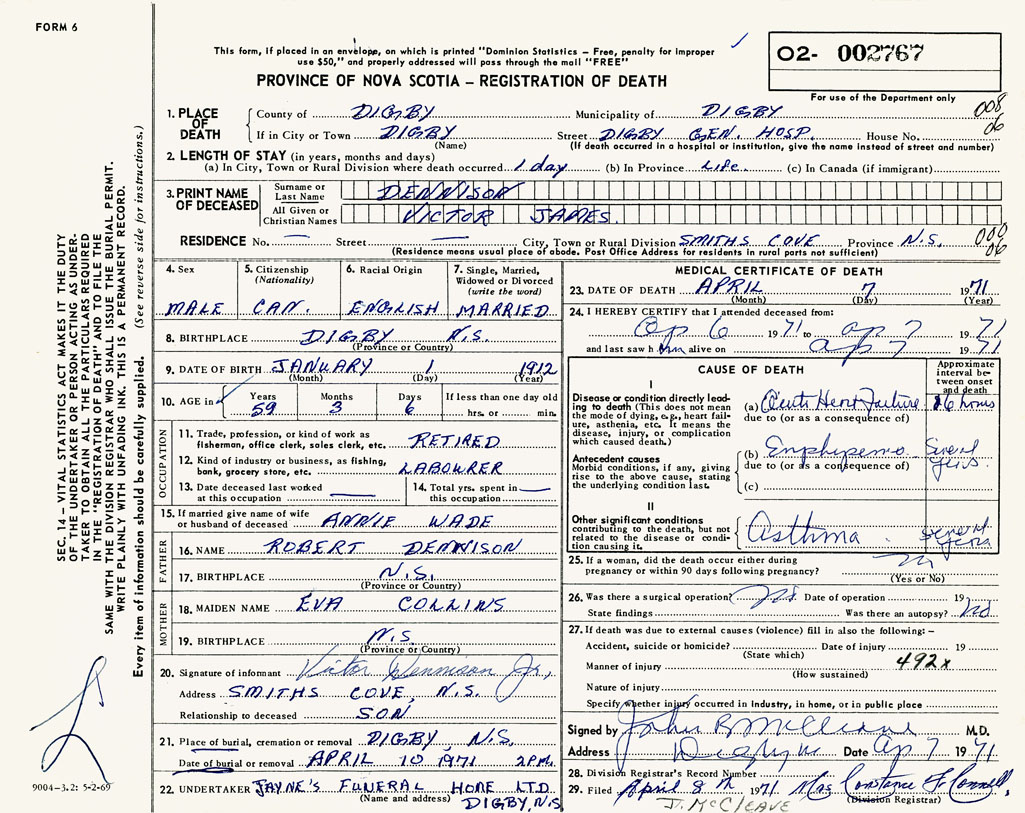 FORM 6
This form, if placed in an envelope, on which is printed "Dominion Statistics – Free, penalty for improper
use $50," and properly addressed will pass through the mail "FREE"
PROVINCE OF NOVA SCOTIA – REGISTRATION OF DEATH
02- 002767
For use of the Department only
008
06
1. PLACE OF DEATH
County of DIGBY Municipality of DIGBY
If in City or Town DIGBY Street DIGBY GEN. HOSP. House No.
(Name) (If death occurred in a hospital or institution, give the name instead of street and number)
2. LENGTH OF STAY (in years, months and days)
(a) In City, Town or Rural Division where death occurred 1 day (b) In Province Life. (c) In Canada (if immigrant)
3. PRINT NAME OF DECEASED
Surname or Last Name DENNISON
All Given or Christian Names VICTOR JAMES.
RESIDENCE No. — Street — City, Town or Rural Division SMITHS COVE Province N.S.
000
06
(Residence means usual place of abode. Post Office Address for residents in rural ports not sufficient)
4. Sex
MALE
5. Citizenship
(Nationality)
CAN.
6. Racial Origin
ENGLISH
7. Single, Married,
Widowed or Divorced
(write the word)
MARRIED
8. BIRTHPLACE DIGBY N.S.
(Province or Country)
9. DATE OF BIRTH JANUARY 1 1912
(Month) (Day) (Year)
10. AGE in
Years Months Days If less than one day old
59 3 6 hrs. or min.
OCCUPATION
11. Trade, profession, or kind of work as
fisherman, office clerk, sales clerk, etc. RETIRED
12. Kind of industry or business, as fishing,
bank, grocery store, etc. LABOURER
13. Date deceased last worked
at this occupation —
14. Total yrs. spent in
this occupation —
15. If married give name of wife
or husband of deceased ANNIE WADE
FATHER
16. NAME ROBERT DENNISON
17. BIRTHPLACE N.S.
(Province or Country)
MOTHER
18. MAIDEN NAME EVA COLLINS
19. BIRTHPLACE N.S.
(Province or Country)
20. Signature of informant Victor Dennison Jr.,
Address SMITHS COVE, N.S.
Relationship to deceased SON
21. Place of burial, cremation or removal DIGBY, N.S.
Date of burial or removal APRIL 10 1971 2 P.M.
22. UNDERTAKER JAYNE'S FUNERAL HOME LTD.
(Name and address) DIGBY, N.S
MEDICAL CERTIFICATE OF DEATH
23. DATE OF DEATH APRIL 7 1971
(Month) (Day) (Year)
24. I HEREBY CERTIFY that I attended deceased from:
Ap 6 1971 to ap 7 1971
and last saw him alive on ap 7 1971
CAUSE OF DEATH
Approximate
interval be-
tween onset
and death
I
Disease or condition directly lead-
ing to death (This does not mean
the mode of dying, e.g., heart fail-
ure, asthenia, etc. It means the
disease, injury, or complication
which caused death.)
(a) Acute Heart Failure 6 hours
due to (or as a consequence of)
Antecedent causes
Morbid conditions, if any, giving
rise to the above cause, stating
the underlying condition last.
(b) Emphysema Several years
due to (or as a consequence of)
(c)
II
Other significant conditions
contributing to the death, but not
related to the disease or condi-
tion causing it.
Asthma. several years
25. If a woman, did the death occur either during
pregnancy or within 90 days following pregnancy?
(Yes or No)
26. Was there a surgical operation? No Date of operation 19
State findings Was there an autopsy? No
27. If death was due to external causes (violence) fill in also the following: –
Accident, suicide or homicide? Date of injury 19
(State which)
Manner of injury 492x
(How sustained)
Nature of injury
Specify whether injury occurred in industry, in home, or in public place
Signed by John R McCleave M.D.
Address Digby Date Ap 7 1971
28. Division Registrar's Record Number
29. Filed April 8th 1971 Mrs Constance F. Connell,
J. McCLEAVE (Division Registrar)
SEC. 14 – VITAL STATISTICS ACT MAKES IT THE DUTY
OF THE UNDERTAKER OR PERSON ACTING AS UNDER-
TAKER TO OBTAIN ALL THE PARTICULARS REQUIRED
IN THE "REGISTRATION OF DEATH" AND TO FILE THE
SAME WITH THE DIVISION REGISTRAR WHO SHALL ISSUE THE BURIAL PERMIT.
WRITE PLAINLY WITH UNFADING INK. THIS IS A PERMANENT RECORD.
Every item of information should be carefully supplied. (See reverse side for instructions.)
9004-3.2: 5-2-69